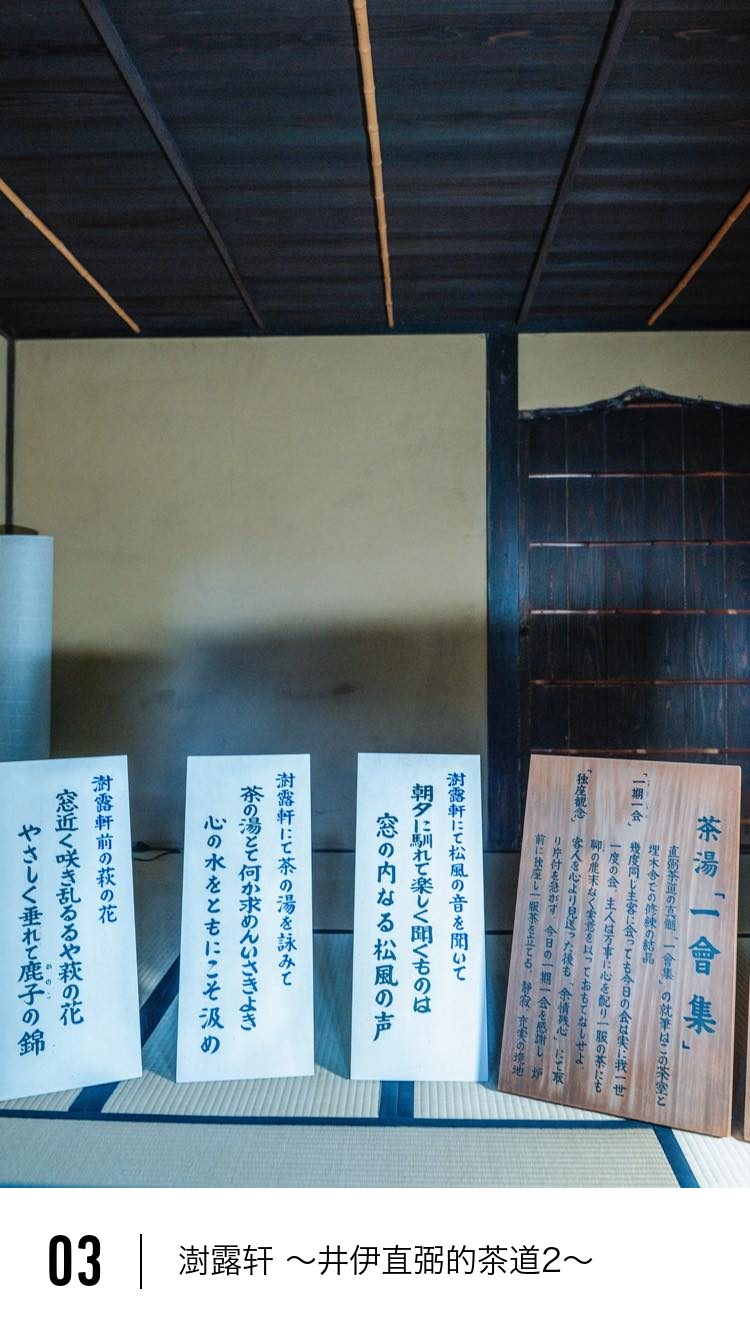 茶湯「一會集」
直弼茶道の真髄「一會集」の執筆はこの茶室と
埋木舎での修練の結晶
「一期一会」
幾度同じ主客に会っても今日の会は実に我一世
一度の会、主人は万事に心を配り一服の茶にも
聊の麁末なく実意を以っておもてなしせよ、
「独座観念」
客人を心より見送った後も「余情残心」にて取
り片付を急がす、今日の一期一会を感謝し 炉
前に独座し一服茶を立てる、静寂 充実の境地
澍露軒にて松風の音を聞いて
朝夕に馴れて楽しく聞くものは
窓の内なる松風の声
澍露軒にて茶の湯を詠みて
茶の湯とて何か求めんいさきよき
心の水をともにこそ汲め
澍露軒前の萩の花
窓近く咲き乱るるや萩の花
やさしく垂れて鹿子の錦
かのこ
03
澍露轩 〜井伊直弼的茶道2〜